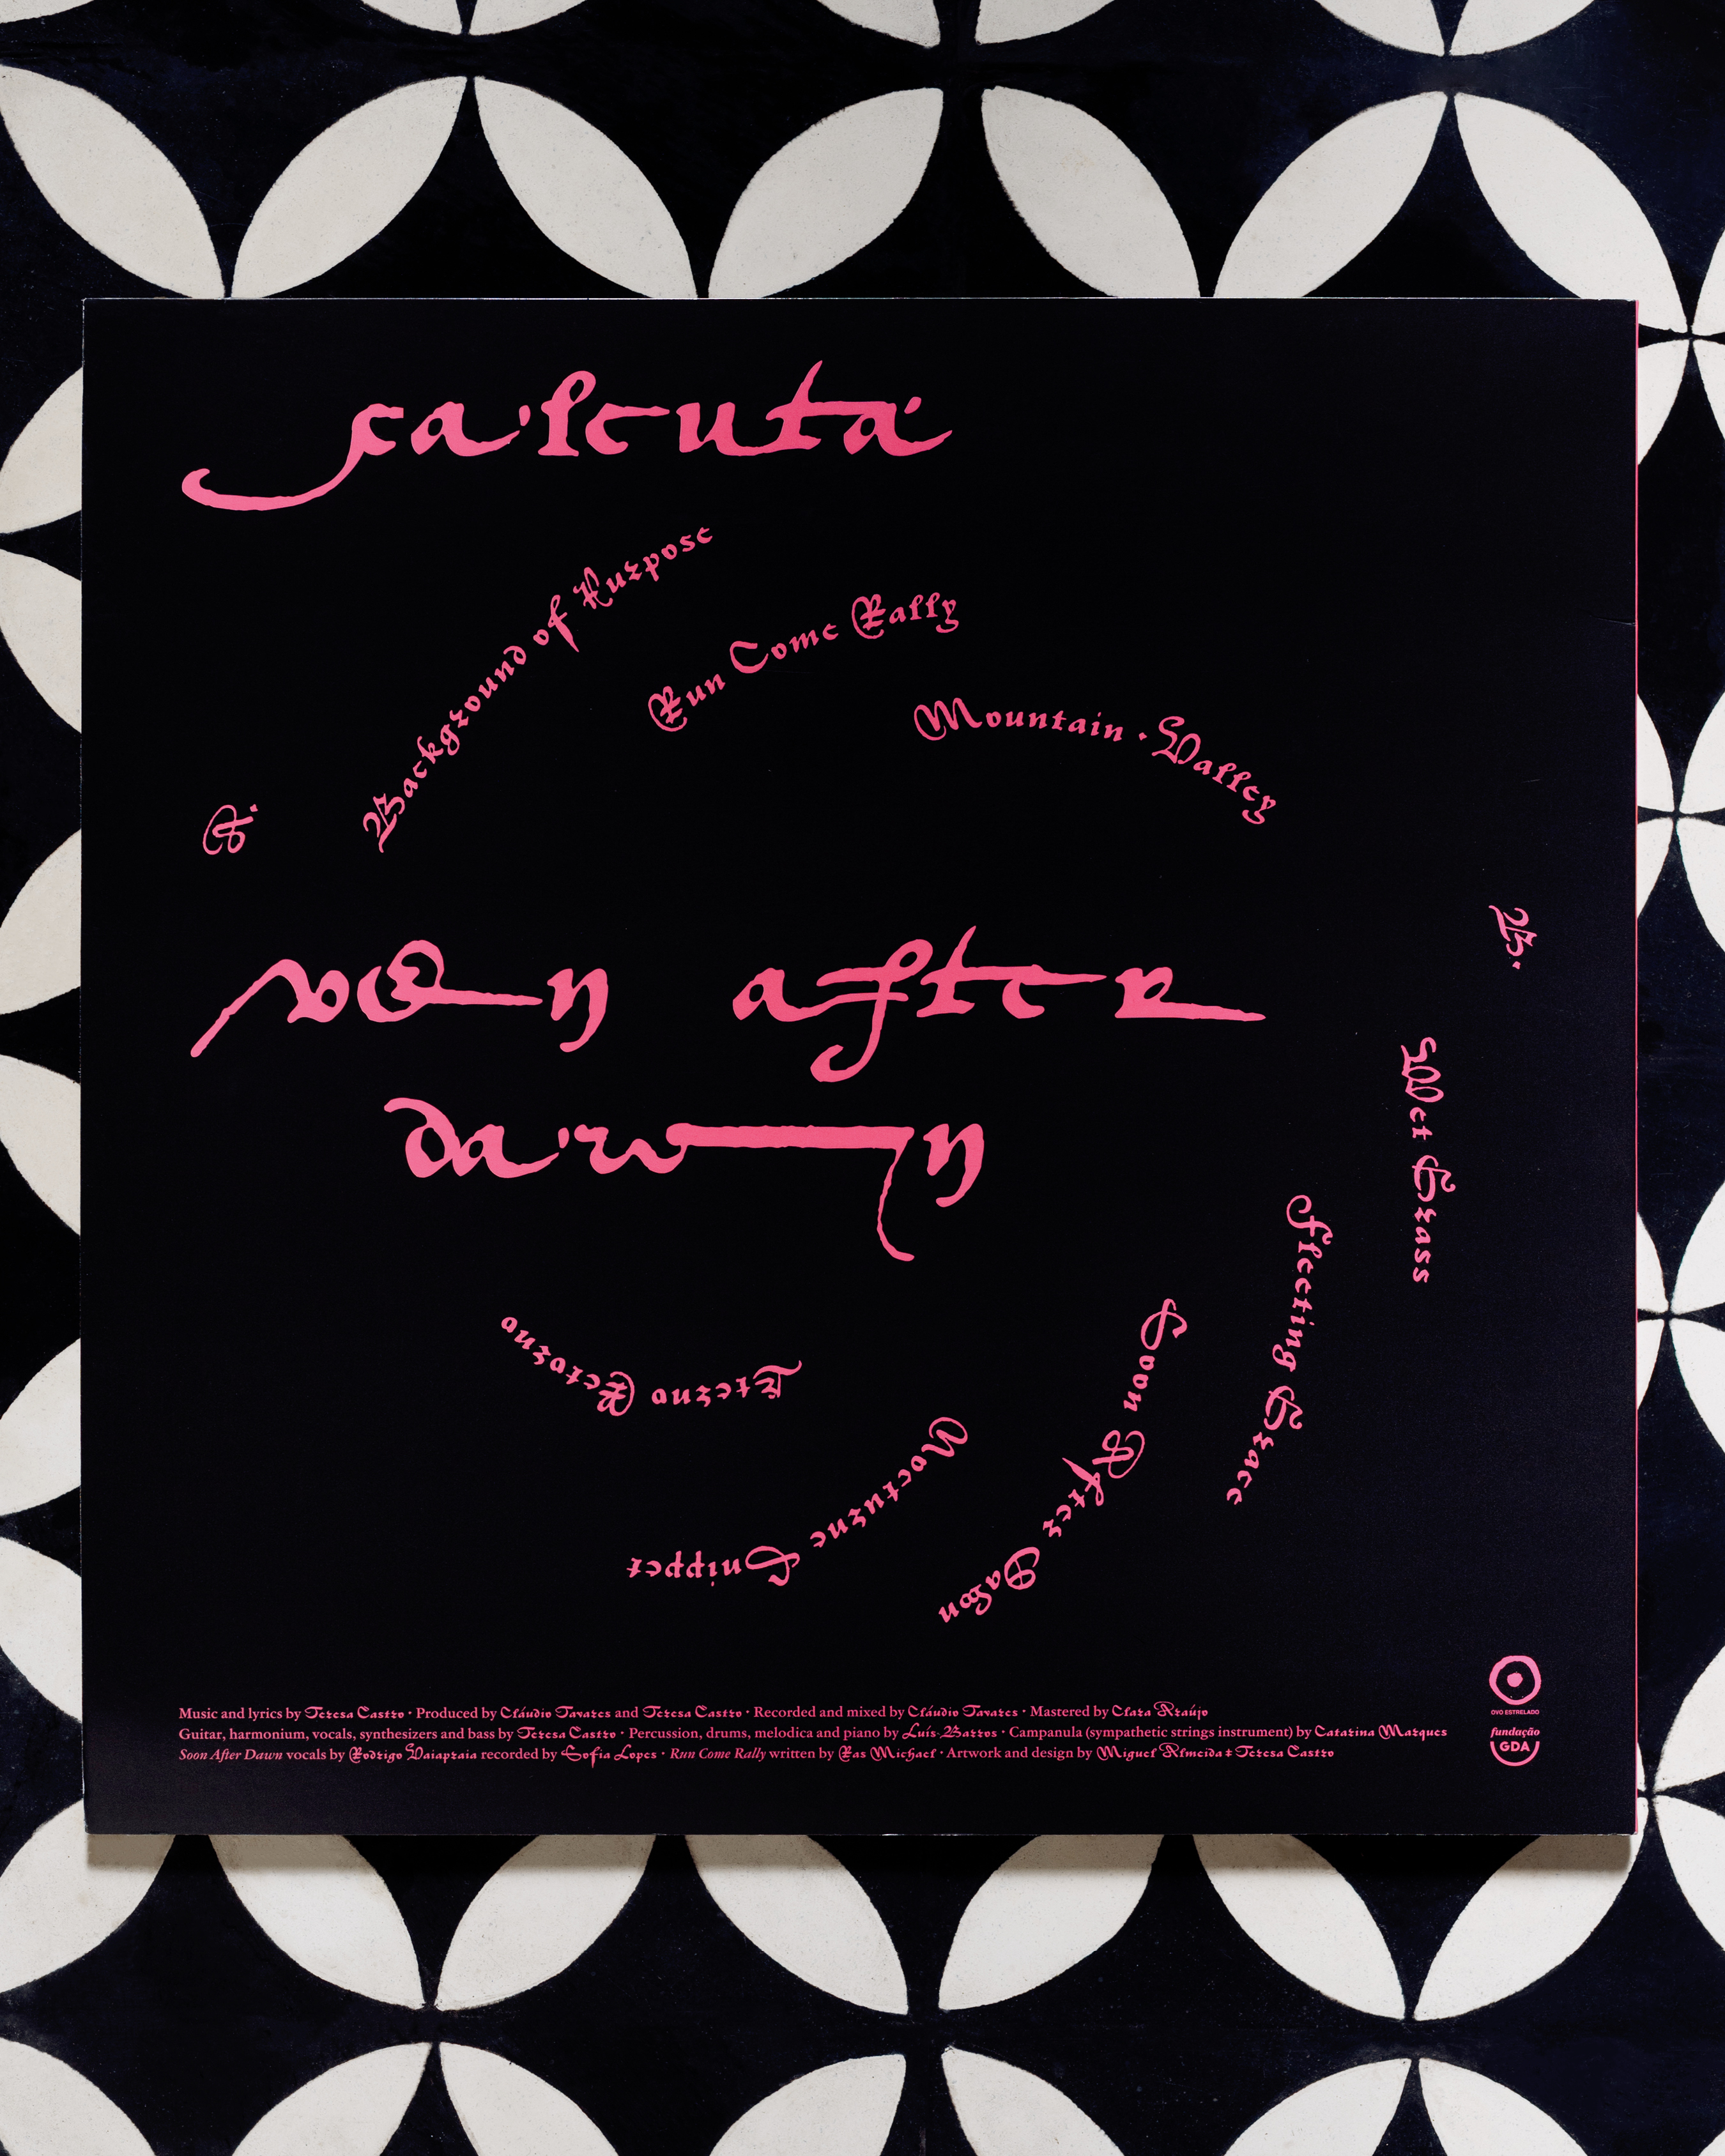 calcutá
A.
Background of Purpose
Run Come Rally
Mountain · Valley
soon after
dawn
B.
Wet Grass
Fleeting Grace
Soon After Dawn
Nocturne Snippet
Eterno Retorno
Music and lyrics by Teresa Castro · Produced by Cláudio Tavares and Teresa Castro · Recorded and mixed by Cláudio Tavares · Mastered by Clara Araújo
Guitar, harmonium, vocals, synthesizers and bass by Teresa Castro · Percussion, drums, melodica and piano by Luís Barros · Campanula (sympathetic strings instrument) by Catarina Marques
Soon After Dawn vocals by Rodrigo Vaiapraia recorded by Sofia Lopes · Run Come Rally written by Ras Michael · Artwork and design by Miguel Almeida + Teresa Castro
OVO ESTRELADO
fundação
GDA